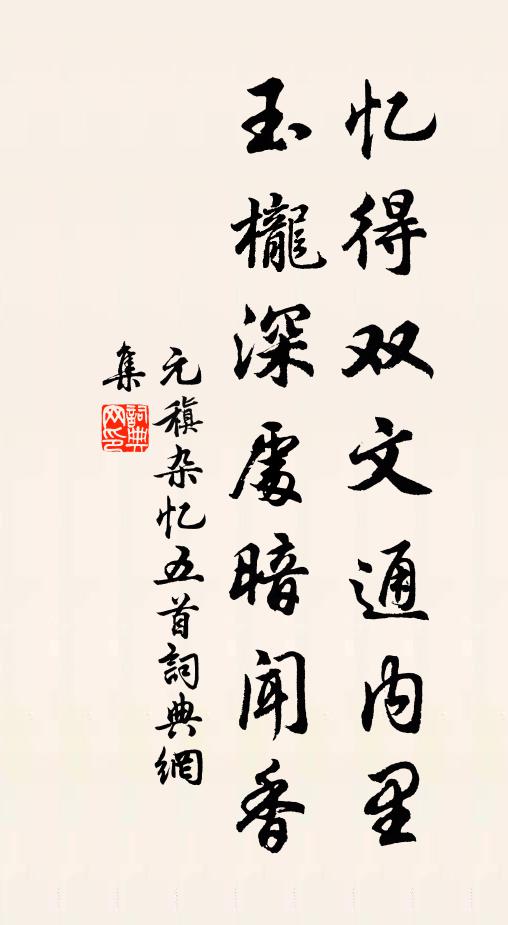 忆得双文通内里
玉櫳深處暗闻香
元稹杂忆五首詞典網
集
詞典网印